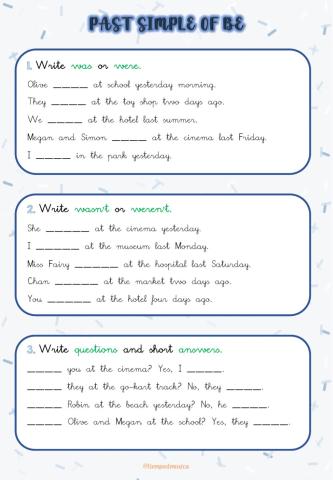 PAST SIMPLE OF BE
1. Write was or were.
Olive ____ at school yesterday morning.
They ____ at the toy shop two days ago.
We ____ at the hotel last summer.
Megan and Simon ____ at the cinema last Friday.
I ____ in the park yesterday.
2. Write wasn't or weren't.
She _____ at the cinema yesterday.
I _____ at the museum last Monday.
Miss Fairy _____ at the hospital last Saturday.
Chan _____ at the market two days ago.
You _____ at the hotel four days ago.
3. Write questions and short answers.
____ you at the cinema? Yes, I ____.
____ they at the go-kart track? No, they ____.
____ Robin at the beach yesterday? No, he ____.
____ Olive and Megan at the school? Yes, they ____.